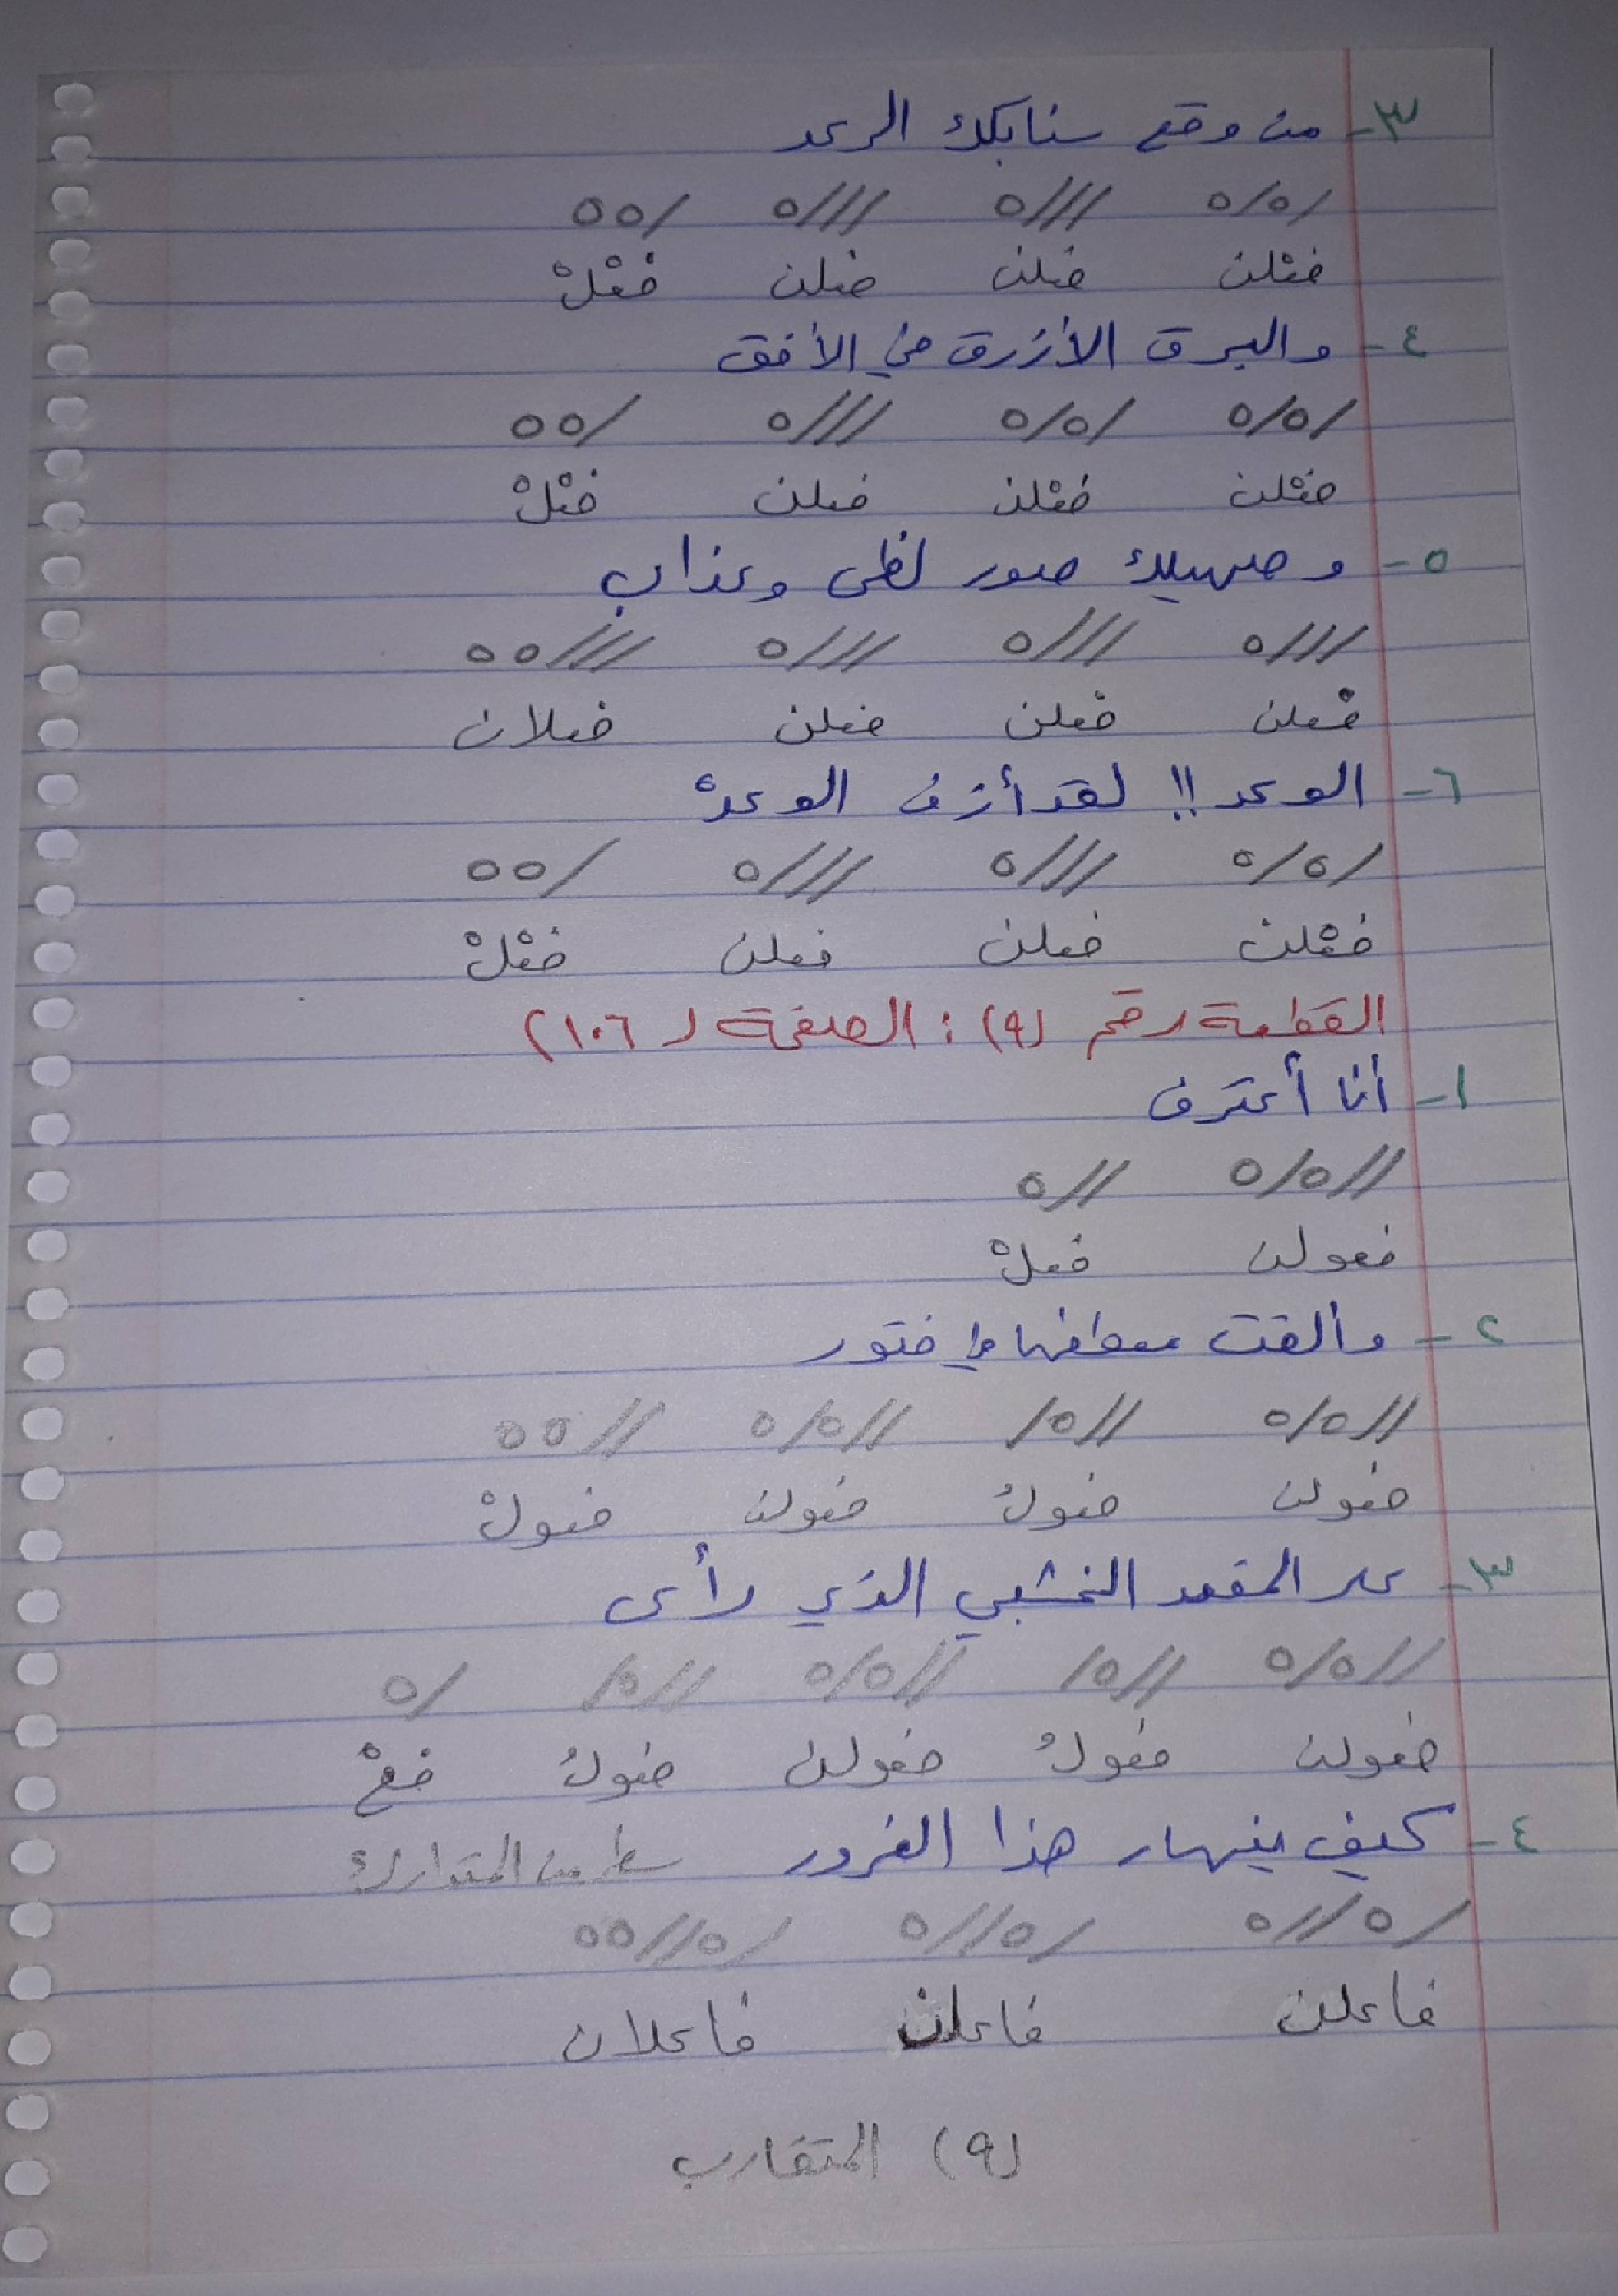 ٣- من وقع سنابكك الرعد
/٥/٥ ///٥ ///٥ /٥٥
فعْلن فعلن فعلن فعْلْ
٤- والبرق الأزرق في الأفق
/٥/٥ /٥/٥ ///٥ /٥٥
فعْلن فعْلن فعلن فعْلْ
٥- وصهيلك صور لظى وعذاب
///٥ ///٥ ///٥ ///٥٥
فعلن فعلن فعلن فعلان
٦- الوعد !! لقد أزف الوعدْ
/٥/٥ ///٥ ///٥ /٥٥
فعْلن فعلن فعلن فعْلْ
القطعة رقم (٩) : الصفحة (١٠٦)
١- أنا أعترف
//٥/٥ //٥
فعولن فعلْ
٢- وألقت معطفها في فتور
//٥/٥ //٥/ //٥/٥ //٥٥
فعولن فعولُ فعولن فعولْ
٣- على المقعد الخشبي الذي رأى
//٥/٥ //٥/ //٥/٥ //٥/ /٥
فعولن فعولُ فعولن فعولُ فعْ
٤- كيف ينهار هذا الغرور سطر من المتدارك
/٥//٥ /٥//٥ /٥//٥٥
فاعلن فاعلن فاعلان
(٩) المتقارب